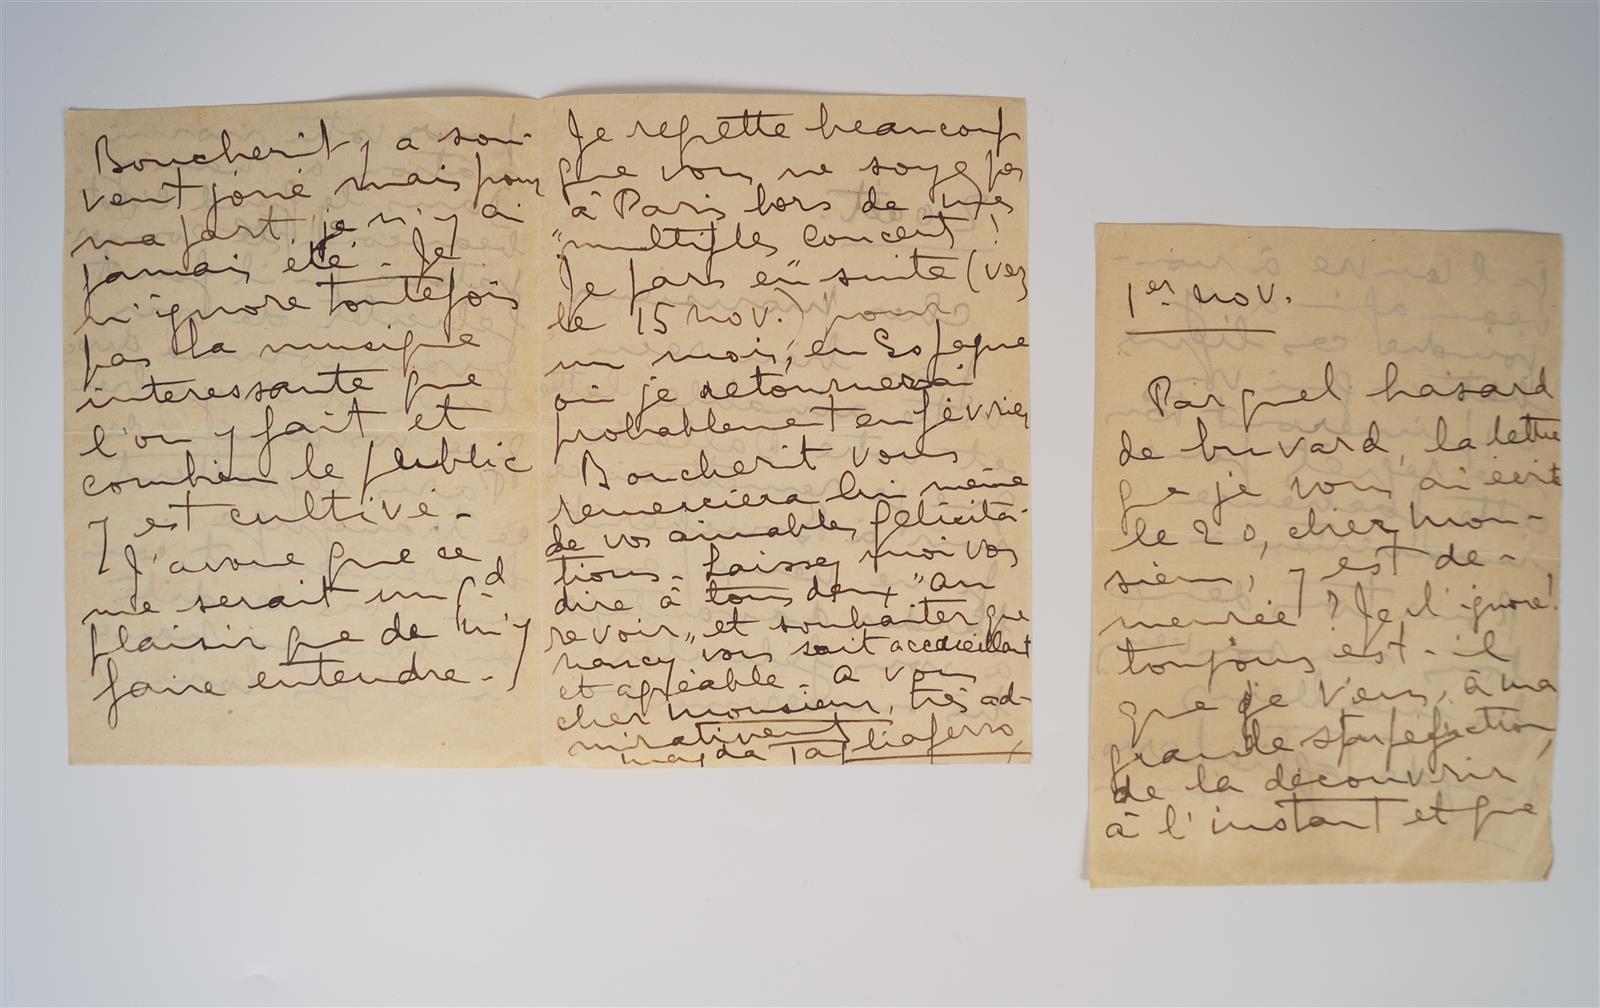 Boucherit y a sou-
vent joué mais pour
ma part, je n'y ai
jamais été - Je
n'ignore toutefois
pas la musique
interessante que
l'on y fait et
combien le public
y est cultivé -
J'avoue que ce
me serait un gd
plaisir que de m'y
faire entendre -
Je regrette beaucoup
que vous ne soyez pas
à Paris lors de mes
"multiples concerts"!
Je pars ensuite (vers
le 15 nov.) pour
un mois, en Espagne
où je retournerai
probablement en février
Boucherit vous
remerciera lui même
de vos aimables félicita-
tions - Laissez moi vous
dire à tous deux "au
revoir" et souhaiter que
Nancy vous soit accueillant
et agréable - A vous
cher Monsieur, très ad-
mirativement
Magda Tagliaferro
1er nov.
Par quel hasard
de buvard, la lettre
que je vous ai écrite
le 20, cher Mon-
sieur, y est de-
meurée? Je l'ignore!
toujours est-il
que je viens, à ma
grande stupéfaction,
de la découvrir
à l'instant et que